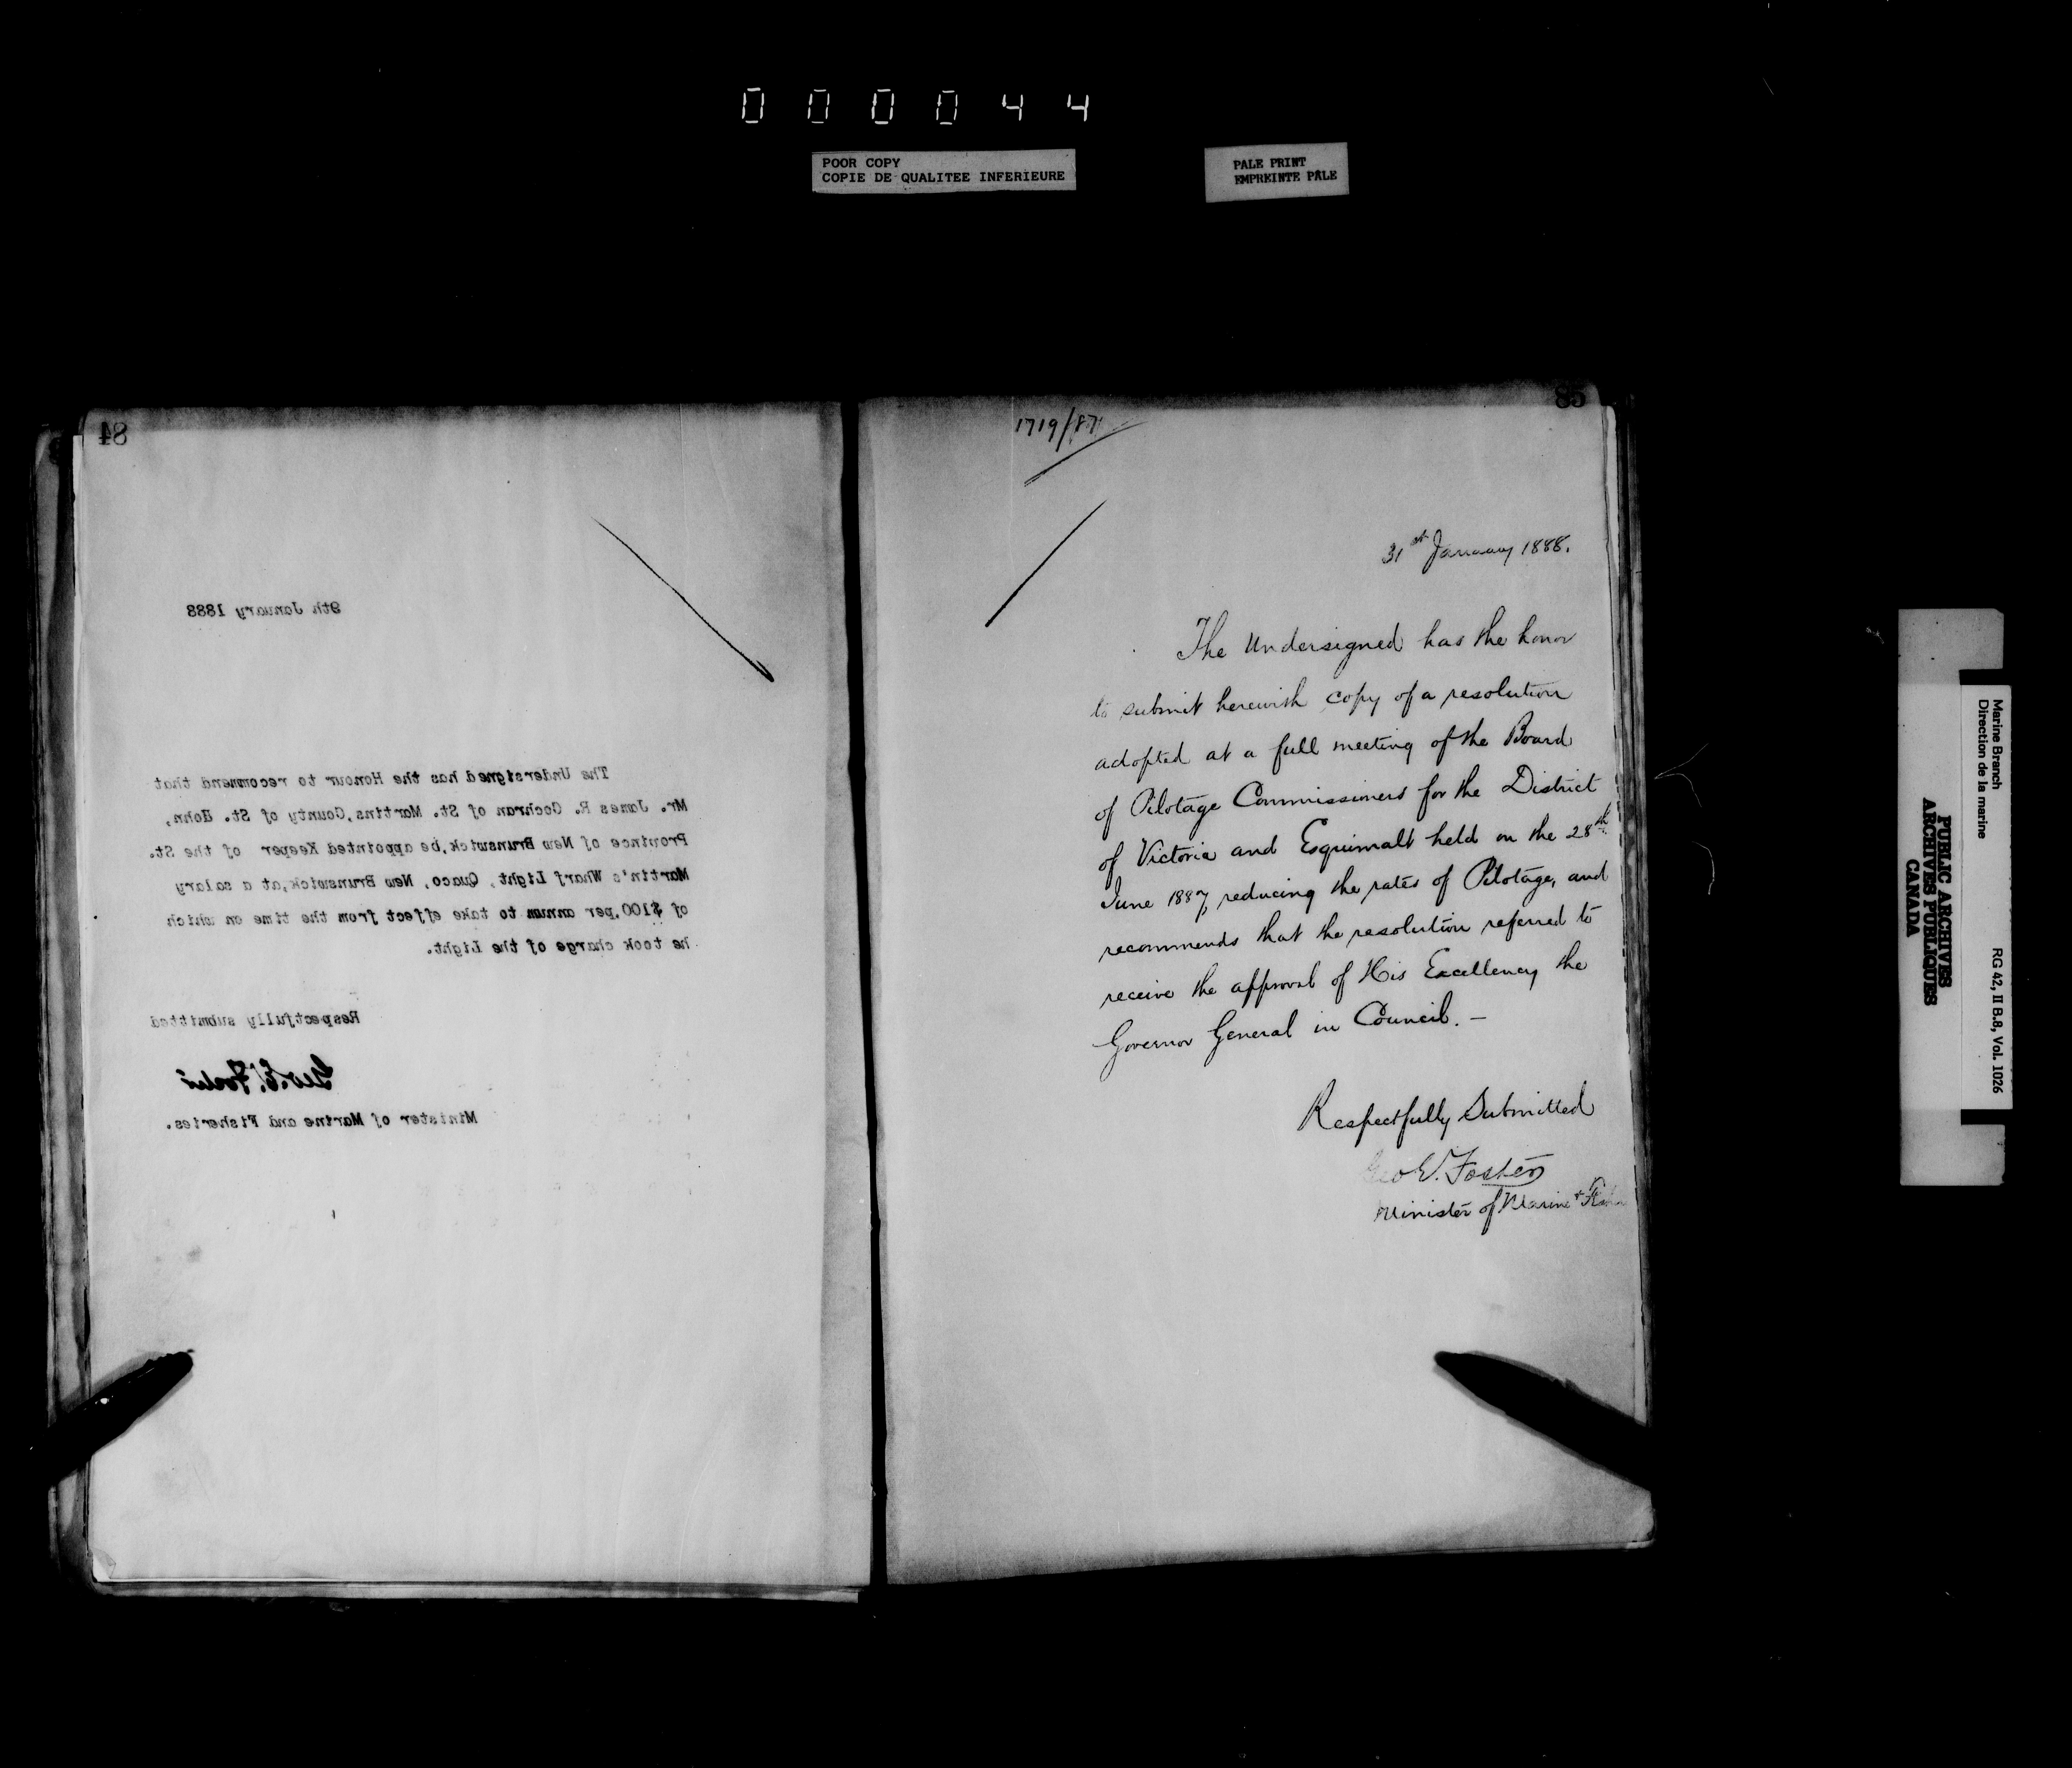 000044
POOR COPY
COPIE DE QUALITEE INFERIEURE
PALE PRINT
EMPREINTE PÂLE
84
9th January 1888
The Undersigned has the Honour to recommend that
Mr. James R. Cochran of St. Martins, County of St. John,
Province of New Brunswick, be appointed Keeper of the St.
Martin's Wharf Light, Quaco, New Brunswick, at a salary
of $100. per annum to take effect from the time on which
he took charge of the Light.
Respectfully submitted
Geo. E. Foster
Minister of Marine and Fisheries.
85
1719/87
31st January 1888.
The Undersigned has the honor
to submit herewith copy of a resolution
adopted at a full meeting of the Board
of Pilotage Commissioners for the District
of Victoria and Esquimalt held on the 28th
June 1887, reducing the rates of Pilotage, and
recommends that the resolution referred to
receive the approval of His Excellency the
Governor General in Council. —
Respectfully Submitted
Geo E. Foster
Minister of Marine +
Marine Branch
Direction de la marine
RG 42, II B.8, Vol. 1026
PUBLIC ARCHIVES
ARCHIVES PUBLIQUES
CANADA